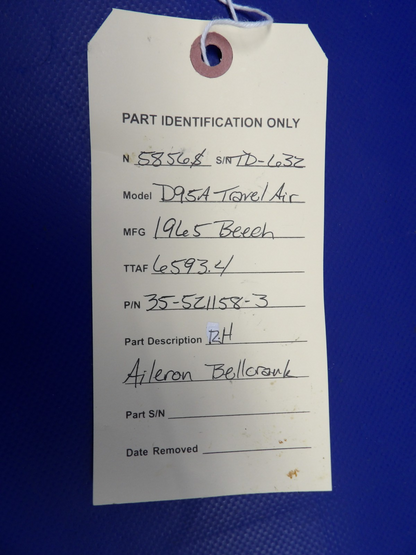 PART IDENTIFICATION ONLY
N 5856S S/N TD-632
Model D95A Travel Air
MFG 1965 Beech
TTAF 6593.4
P/N 35-521158-3
Part Description RH
Aileron Bellcrank
Part S/N
Date Removed